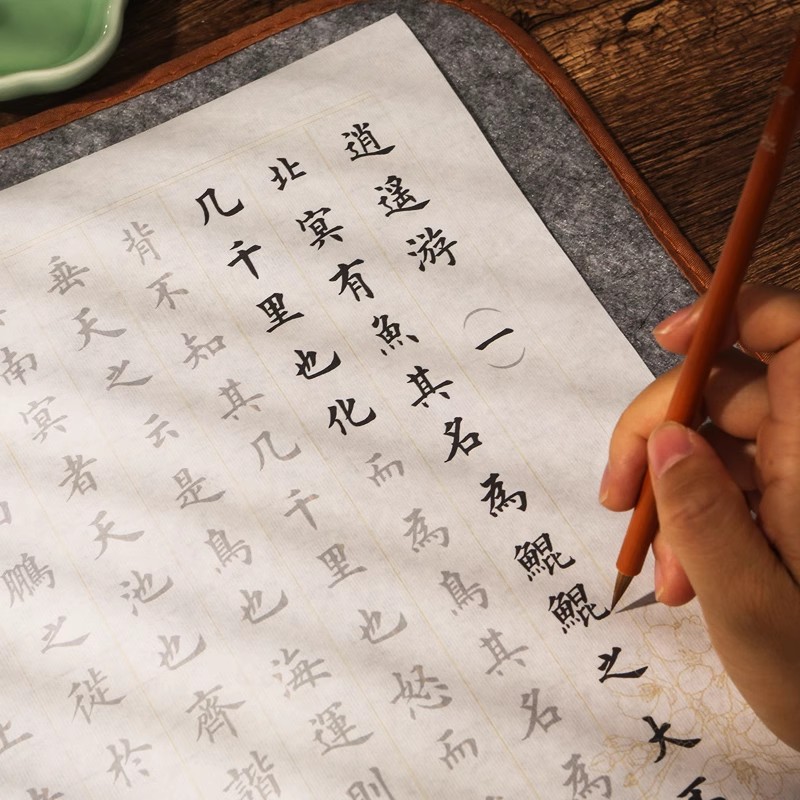 逍遙游（一）
北冥有魚其名為鯤鯤之大不
几千里也化而為鳥其名為
背不知其几千里也怒而
垂天之云是鳥也海運則
南冥者天池也齊諧
鵬之徙於